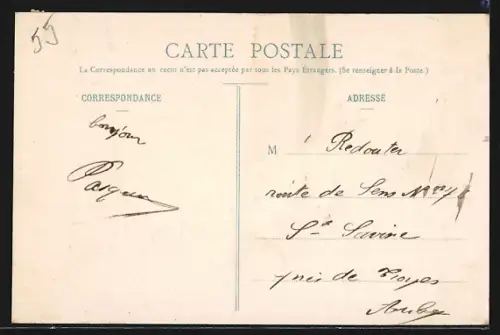 55
CARTE POSTALE
La Correspondance au recto n'est pas acceptée par tous les Pays Étrangers. (Se renseigner à la Poste.)
CORRESPONDANCE
bonjour
ADRESSE
M Redouter
route de Sens N°
Ste Savine
près de Troyes
Aube